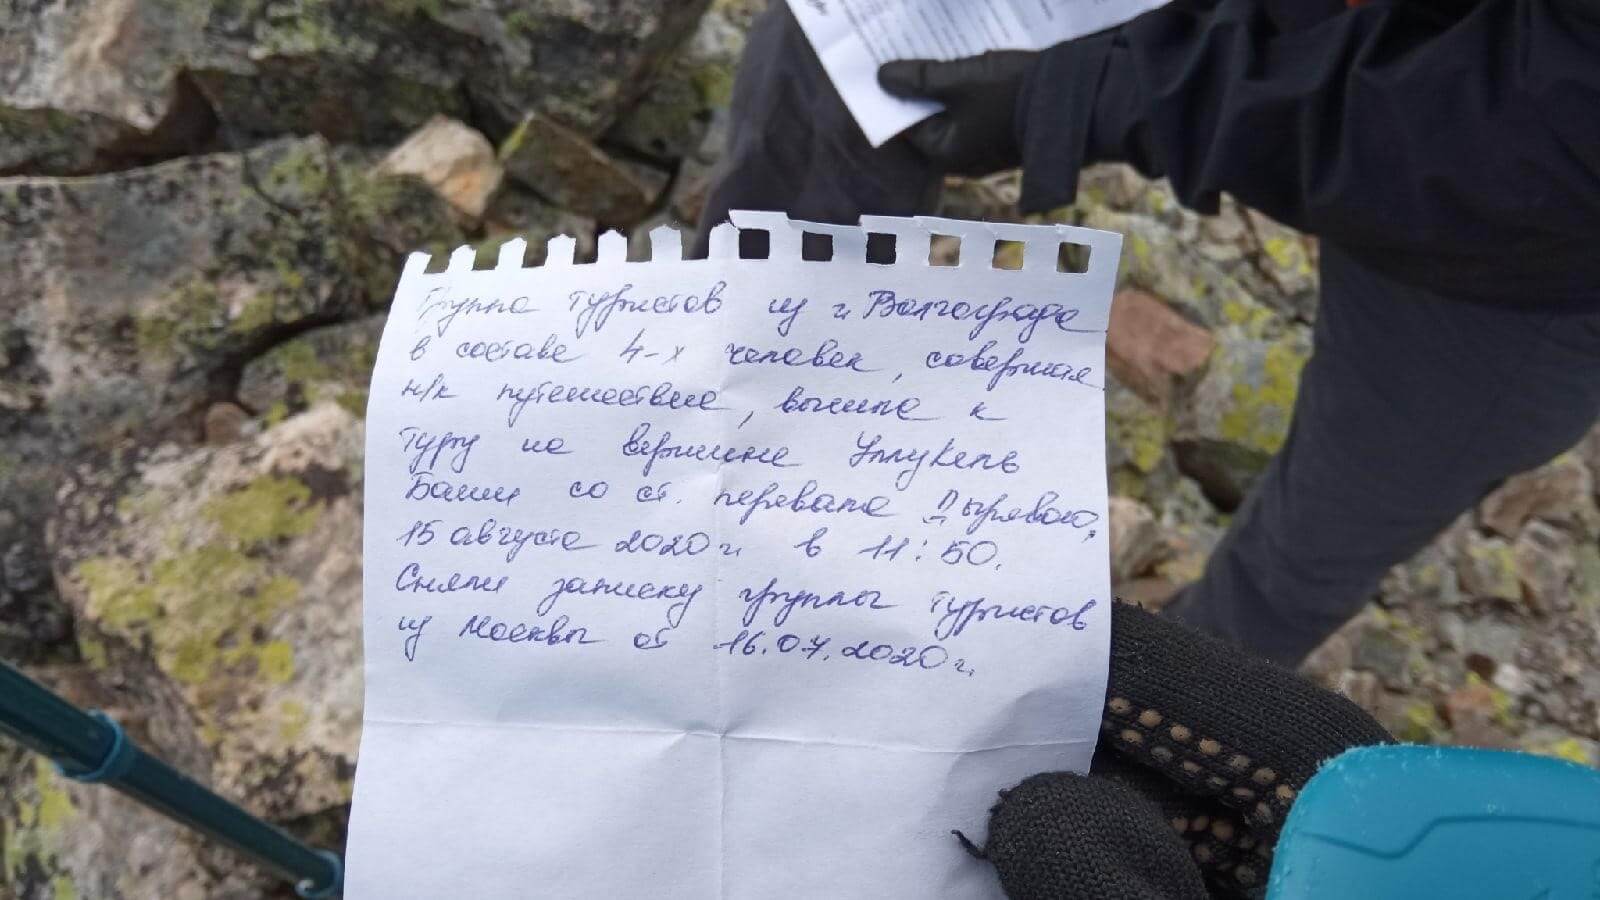 Группа туристов из г. Волгограда
в составе 4-х человек, совершая
н/к путешествие, вышла к
туру на вершине Уллукель
Баши со ст. перевала Дырявого,
15 августа 2020 г. в 11:50.
Сняли записку группы туристов
из Москвы от 16.07.2020 г.